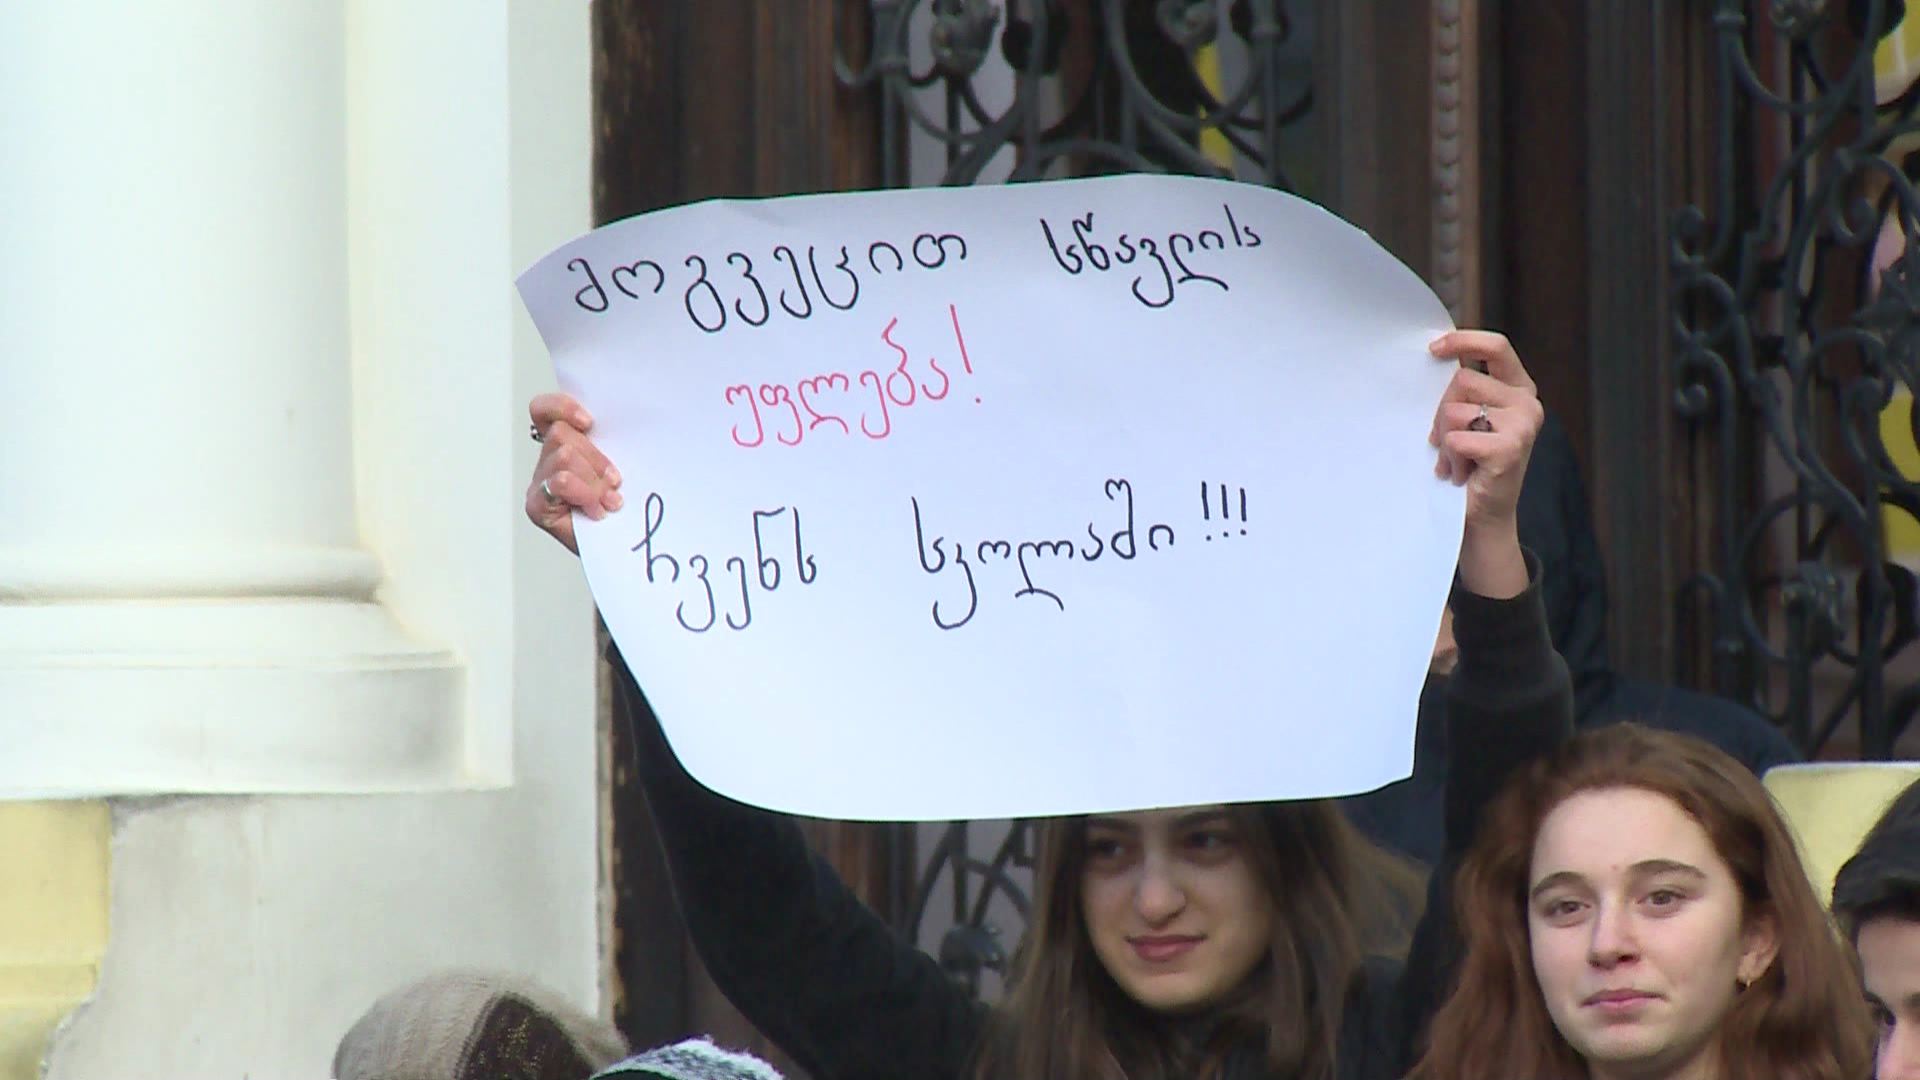 მოგვეცით სწავლის
უფლება!
ჩვენს სკოლაში!!!